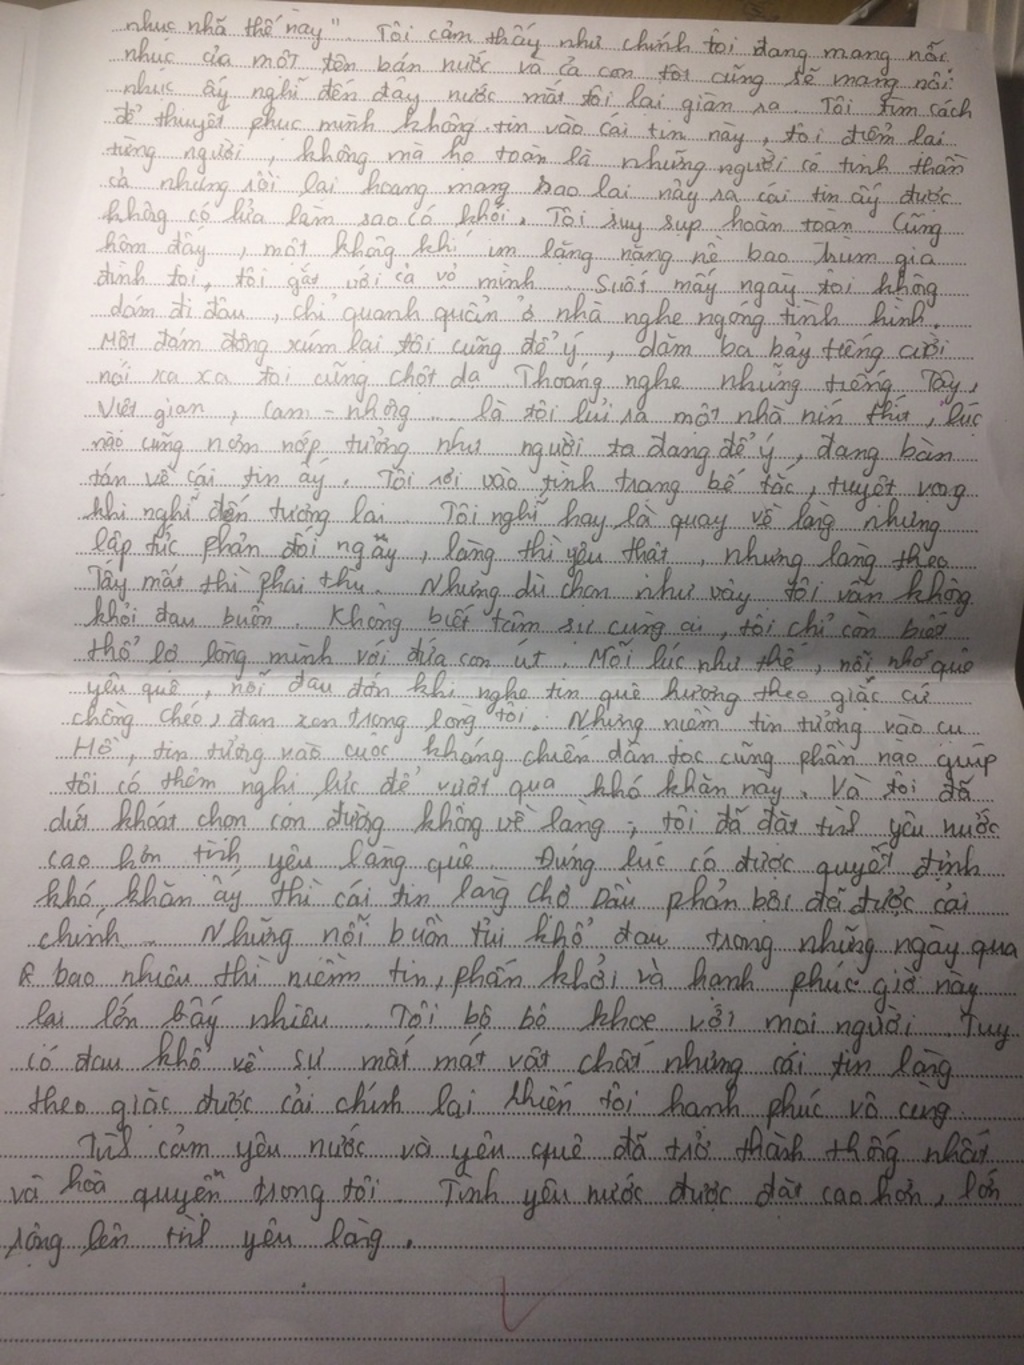 nhục nhã thế này". Tôi cảm thấy như chính tôi đang mang nỗi
nhục của một tên bán nước và cả con tôi cũng sẽ mang nỗi
nhục ấy nghĩ đến đây nước mắt tôi lại giàn ra. Tôi tìm cách
để thuyết phục mình không tin vào cái tin này, tôi điểm lại
từng người, không mà họ toàn là những người có tinh thần
cả nhưng rồi lại hoang mang sao lại nảy ra cái tin ấy được
không có lửa làm sao có khói. Tôi suy sụp hoàn toàn. Cũng
hôm đấy, một không khí im lặng nặng nề bao trùm gia
đình tôi, tôi gắt với cả vợ mình. Suốt mấy ngày tôi không
dám đi đâu, chỉ quanh quẩn ở nhà nghe ngóng tình hình.
Một đám đông xúm lại tôi cũng để ý, dăm ba bảy tiếng cười
nói xa xa tôi cũng chột dạ. Thoáng nghe những tiếng Tây,
Việt gian, cam-nhông... là tôi lủi ra một nhà nín thít, lúc
nào cũng nơm nớp tưởng như người ta đang để ý, đang bàn
tán về cái tin ấy. Tôi rơi vào tình trạng bế tắc, tuyệt vọng
khi nghĩ đến tương lai. Tôi nghĩ hay là quay về làng nhưng
lập tức phản đối ngay, làng thì yêu thật, nhưng làng theo
Tây mất thì phải thù. Nhưng dù chọn như vậy tôi vẫn không
khỏi đau buồn. Không biết tâm sự cùng ai, tôi chỉ còn biết
thổ lộ lòng mình với đứa con út. Mỗi lúc như thế, nỗi nhớ quê
yêu quê, nỗi đau đớn khi nghe tin quê hương theo giặc cứ
chồng chéo, đan xen trong lòng tôi. Nhưng niềm tin tưởng vào cụ
Hồ, tin tưởng vào cuộc kháng chiến dân tộc cũng phần nào giúp
tôi có thêm nghị lực để vượt qua khó khăn này. Và tôi đã
dứt khoát chọn con đường không về làng, tôi đã đặt tình yêu nước
cao hơn tình yêu làng quê. Đúng lúc có được quyết định
khó khăn ấy thì cái tin làng chợ Dầu phản bội đã được cải
chính... Những nỗi buồn tủi khổ đau trong những ngày qua
bao nhiêu thì niềm tin, phấn khởi và hạnh phúc giờ này
lại lớn bấy nhiêu. Tôi bô bô khoe với mọi người. Tuy
có đau khổ về sự mất mát vật chất nhưng cái tin làng
theo giặc được cải chính lại khiến tôi hạnh phúc vô cùng.
Tình cảm yêu nước và yêu quê đã trở thành thống nhất
và hoà quyện trong tôi. Tình yêu nước được đặt cao hơn, lớn
rộng lên tình yêu làng.